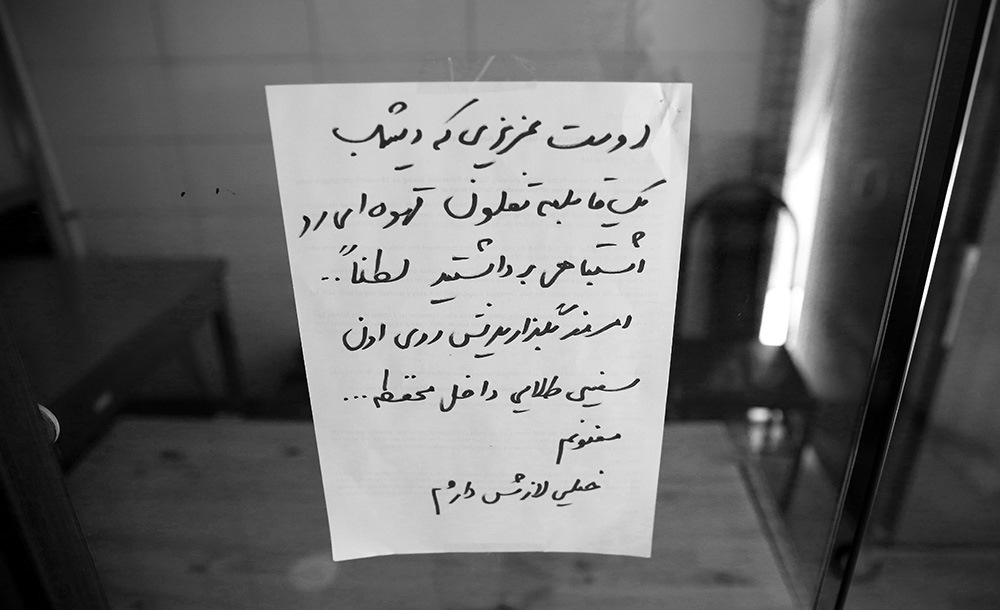 دوست عزیزی که دیشب
یک قابلمه تفلون قهوه ای رو
اشتباهی برداشتید لطفاً..
بگذاریدش روی اون
سینی طلایی داخل محوطه...
ممنونم
خیلی لازمش دارم